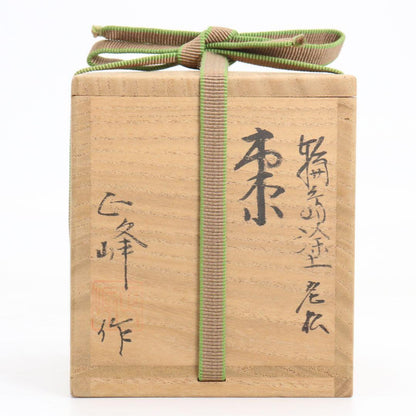 輪島塗 老松
棗
正峰 作